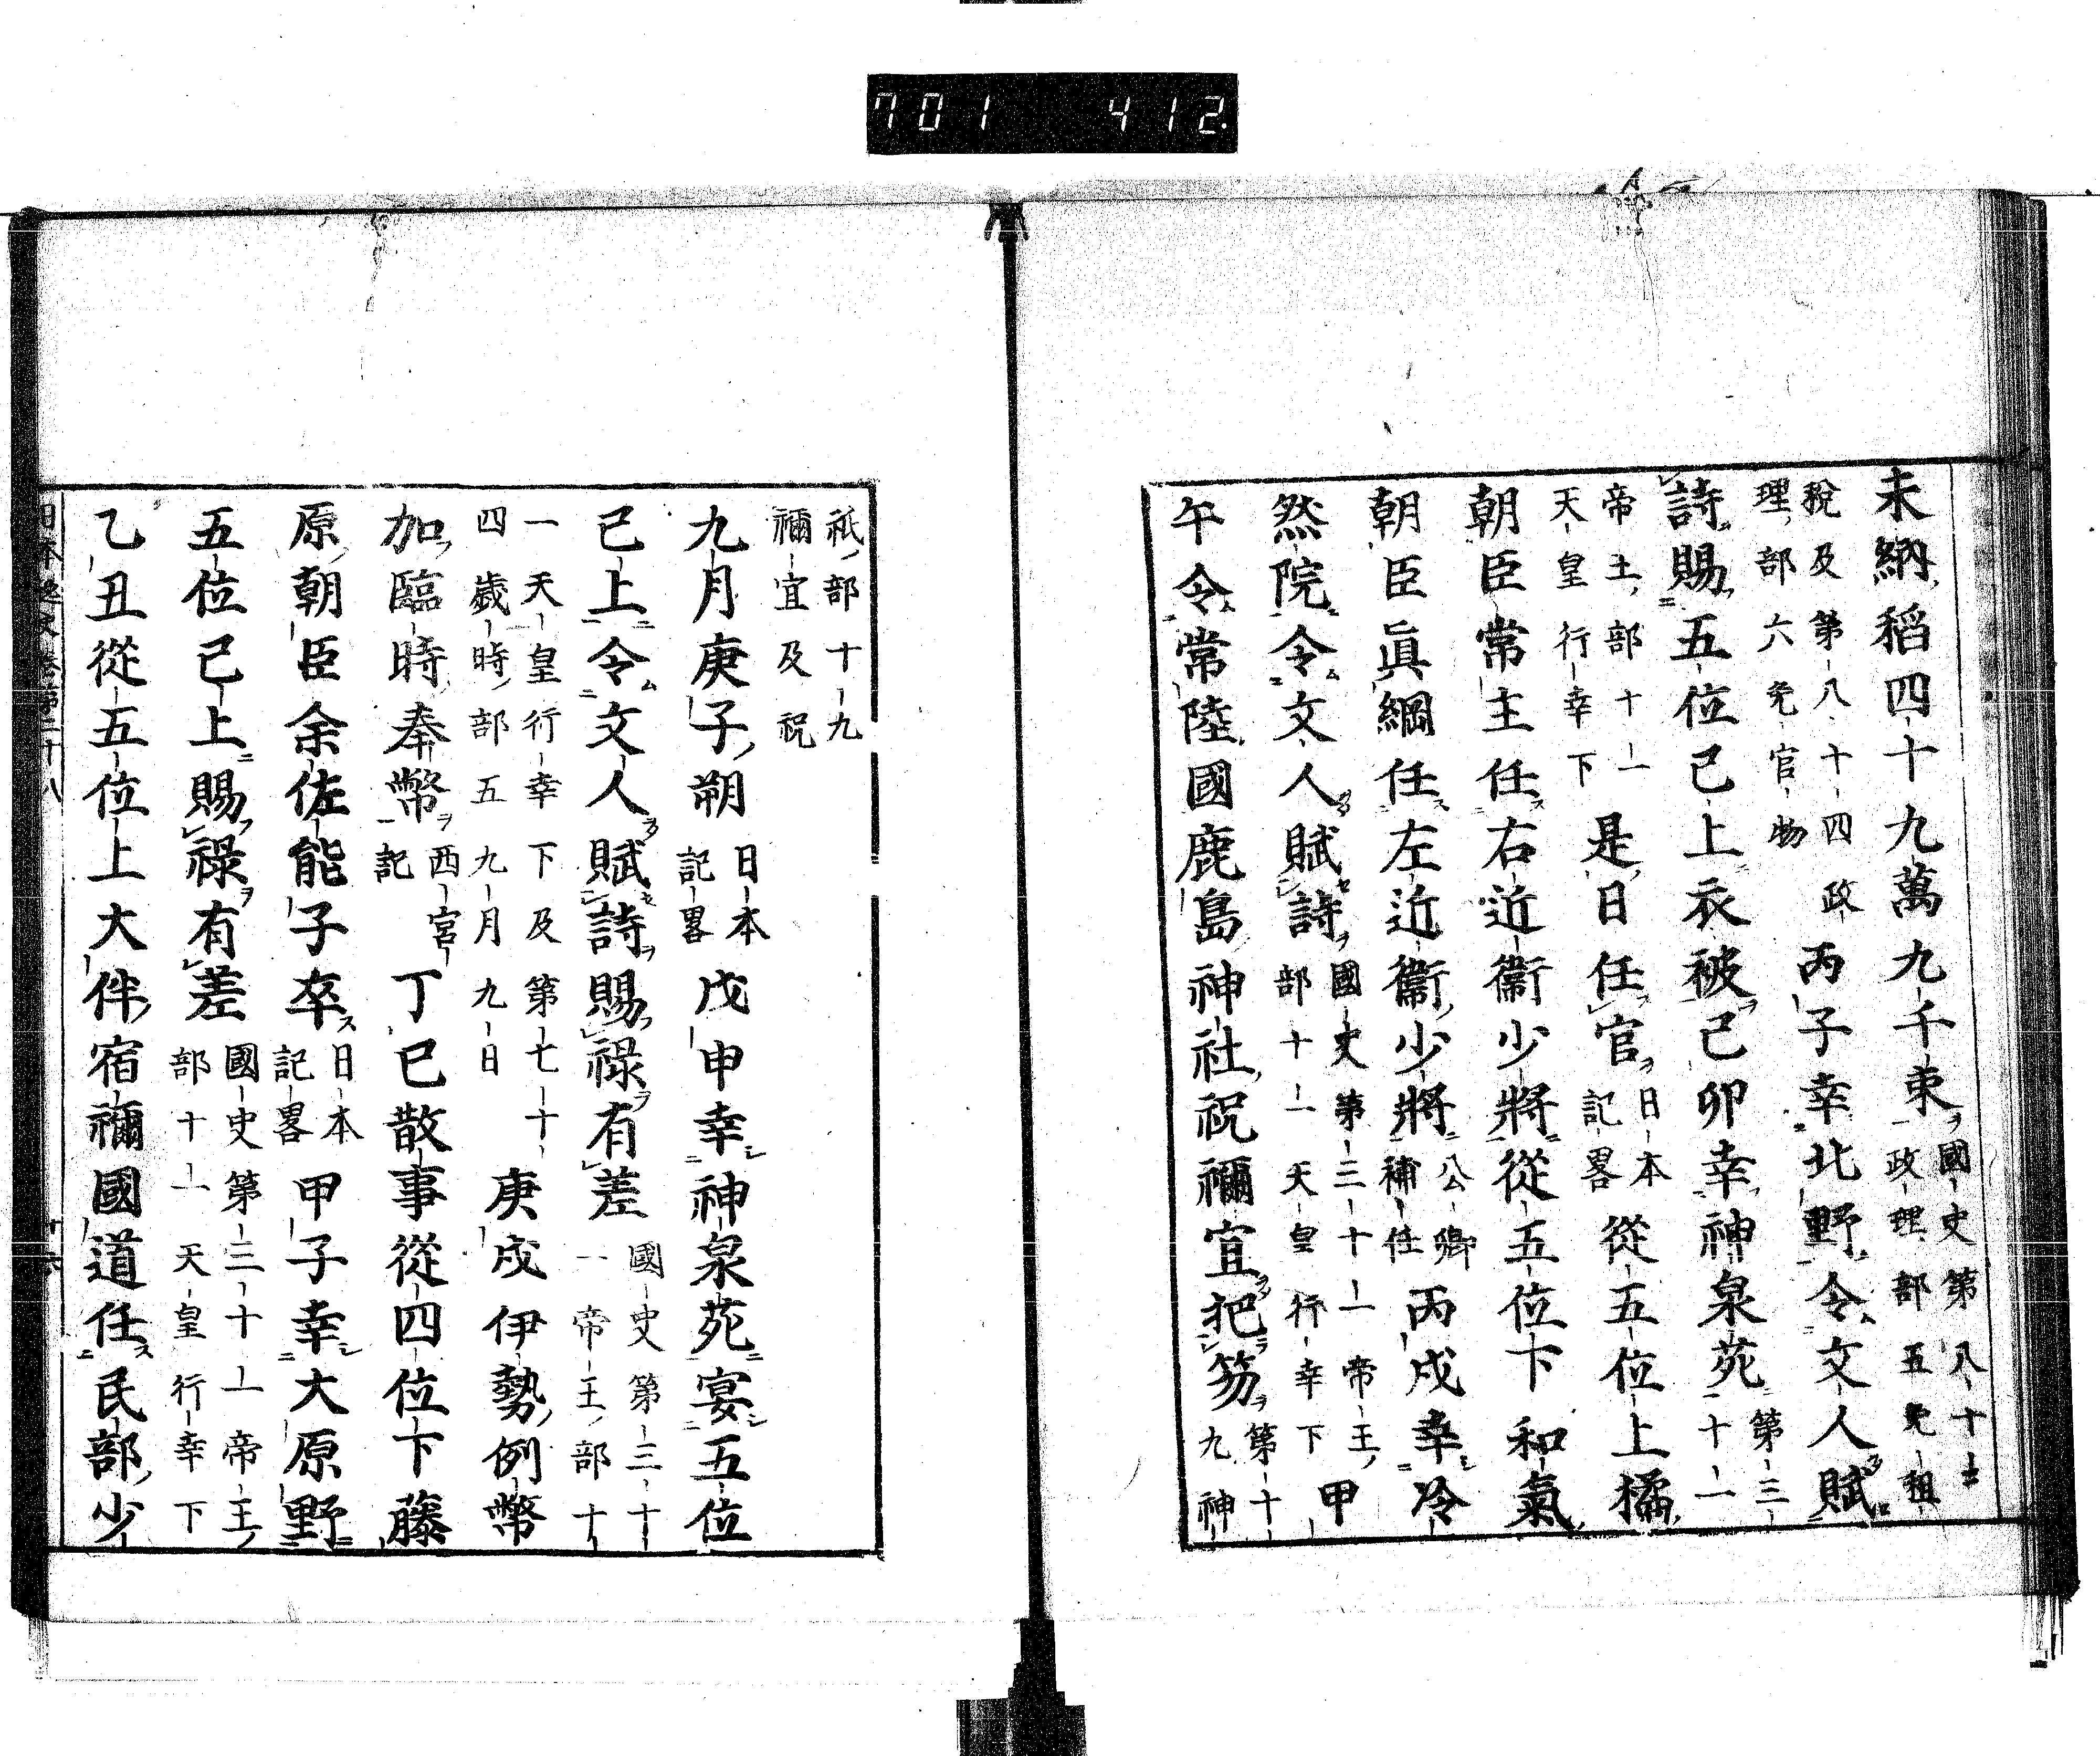 701 412
未納稻四十九萬九千束國史第八十
政理部五免租
税及第八十四政
理部六免官物
丙子幸北野令文人賦
詩賜五位已上衣被己卯幸神泉苑第三
十一
帝王部十一
天皇行幸下
是日任官日本
記畧
從五位上橘
朝臣常主任右近衞少將從五位下和氣
朝臣眞綱任左近衞少將公卿
補任
丙戌幸冷
然院令文人賦詩國史第三十一帝王
部十一天皇行幸下
甲
午令常陸國鹿島神社祝禰宜把笏第十
九神
祇部十九
禰宜及祝
九月庚子朔日本
記畧
戊申幸神泉苑宴五位
已上令文人賦詩賜禄有差國史第三十
一帝王部十
一天皇行幸下及第七十
四歳時部五九月九日
庚戌伊勢例幣
加臨時奉幣西宮
記
丁巳散事從四位下藤
原朝臣余佐能子卒日本
記畧
甲子幸大原野
五位已上賜禄有差國史第三十一帝王
部十一天皇行幸下
乙丑從五位上大伴宿禰國道任民部少
日本逸史卷第二十八